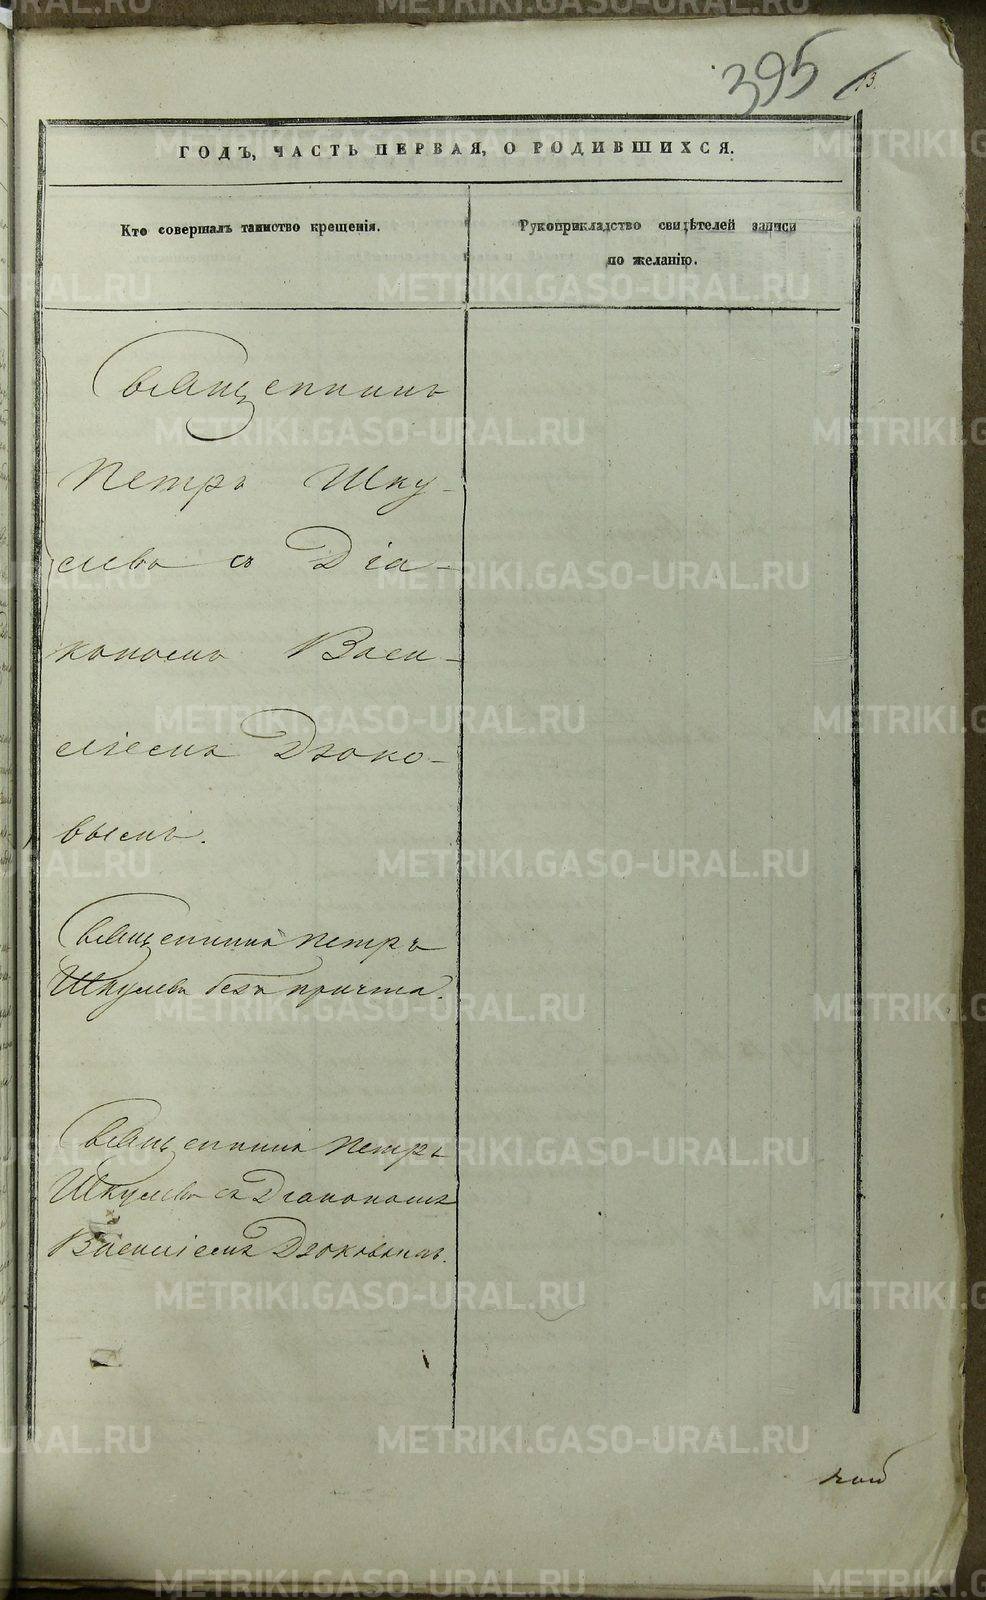 395
13.
ГОДЪ, ЧАСТЬ ПЕРВАЯ, О РОДИВШИХСЯ.
Кто совершалъ таинство крещенія.
Рукоприкладство свидѣтелей записи
по желанію.
Священникъ
Петръ Шку-
левъ съ Діа-
кономъ Васи-
ліемъ Дьяко-
вымъ.
Священникъ Петръ
Шкулевъ безъ причта.
Священникъ Петръ
Шкулевъ съ Діакономъ
Василіемъ Дьяковымъ.
METRIKI.GASO-URAL.RU